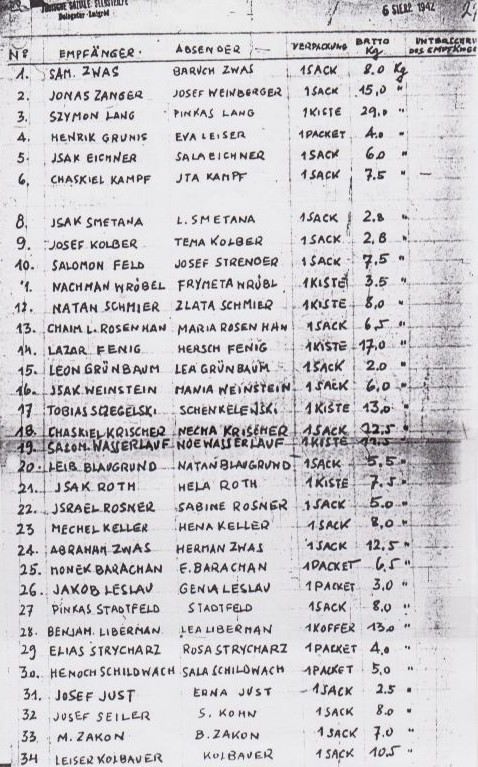 JÜDISCHE SOZIALE SELBSTHILFE
Delegatur 6 SIERP. 1942 24
No EMPFÄNGER. ABSENDER VERPACKUNG BATTO Kg UNTERSCHRI DES EMPFÄNGE
1. SAM. ZWAS BARUCH ZWAS 1 SACK 8.0 Kg
2. JONAS ZANGER JOSEF WEINBERGER 1 SACK 15,0 "
3. SZYMON LANG PINKAS LANG 1 KISTE 29.0 "
4. HENRIK GRUNIS EVA LEISER 1 PACKET 4.0 "
5. JSAK EICHNER SALA EICHNER 1 SACK 6.0 "
6, CHASKIEL KAMPF JTA KAMPF 1 SACK 7.5 "
8. JSAK SMETANA L. SMETANA 1 SACK 2.8 "
9. JOSEF KOLBER TEMA KOLBER 1 SACK 2,8 "
10. SALOMON FELD JOSEF STRENGER 1 SACK 7,5 "
11. NACHMAN WRÓBEL FRYMETA WRÓBL 1 KISTE 3.5 "
12. NATAN SCHMIER ZLATA SCHMIER 1 KISTE 8,0 "
13. CHAIM L. ROSENHAN MARIA ROSENHAN 1 SACK 6,5 "
14. LAZAR FENIG HERSCH FENIG 1 KISTE 17,0 "
15. LEON GRÜNBAUM LEA GRÜNBAUM 1 SACK 2.0 "
16. JSAK WEINSTEIN MANIA WEINSTEIN 1 SACK 6,0 "
17 TOBIAS SZEGELSKI SCHENKELEWSKI 1 KISTE 13,0 "
18. CHASKIEL KRISCHER NECHA KRISCHER 1 SACK 22,5 "
19. SALOM. WASSERLAUF NOE WASSERLAUF 1 KISTE "
20. LEIB BLAUGRUND NATAN BLAUGRUND 1 SACK 5,5 "
21. JSAK ROTH HELA ROTH 1 KISTE 7.5 "
22. JSRAEL ROSNER SABINE ROSNER 1 SACK 5.0 "
23 MECHEL KELLER HENA KELLER 1 SACK 8,0 "
24. ABRAHAM ZWAS HERMAN ZWAS 1 SACK 12,5 "
25. MONEK BARACHAN E. BARACHAN 1 PACKET 6,5 "
26. JAKOB LESLAU GENIA LESLAU 1 PACKET 3.0 "
27 PINKAS STADTFELD STADTFELD 1 SACK 8.0 "
28. BENJAM. LIBERMAN LEA LIBERMAN 1 KOFFER 13.0 "
29 ELIAS STRYCHARZ ROSA STRYCHARZ 1 PACKET 4,0 "
30. HENOCH SCHILDWACH SALA SCHILDWACH 1 PACKET 5.0 "
31. JOSEF JUST ERNA JUST 1 SACK 2.5 "
32 JOSEF SEILER S. KOHN 1 SACK 8.0 "
33. M. ZAKON B. ZAKON 1 SACK 7.0 "
34 LEISER KOLBAUER KOLBAUER 1 SACK 10.5 "